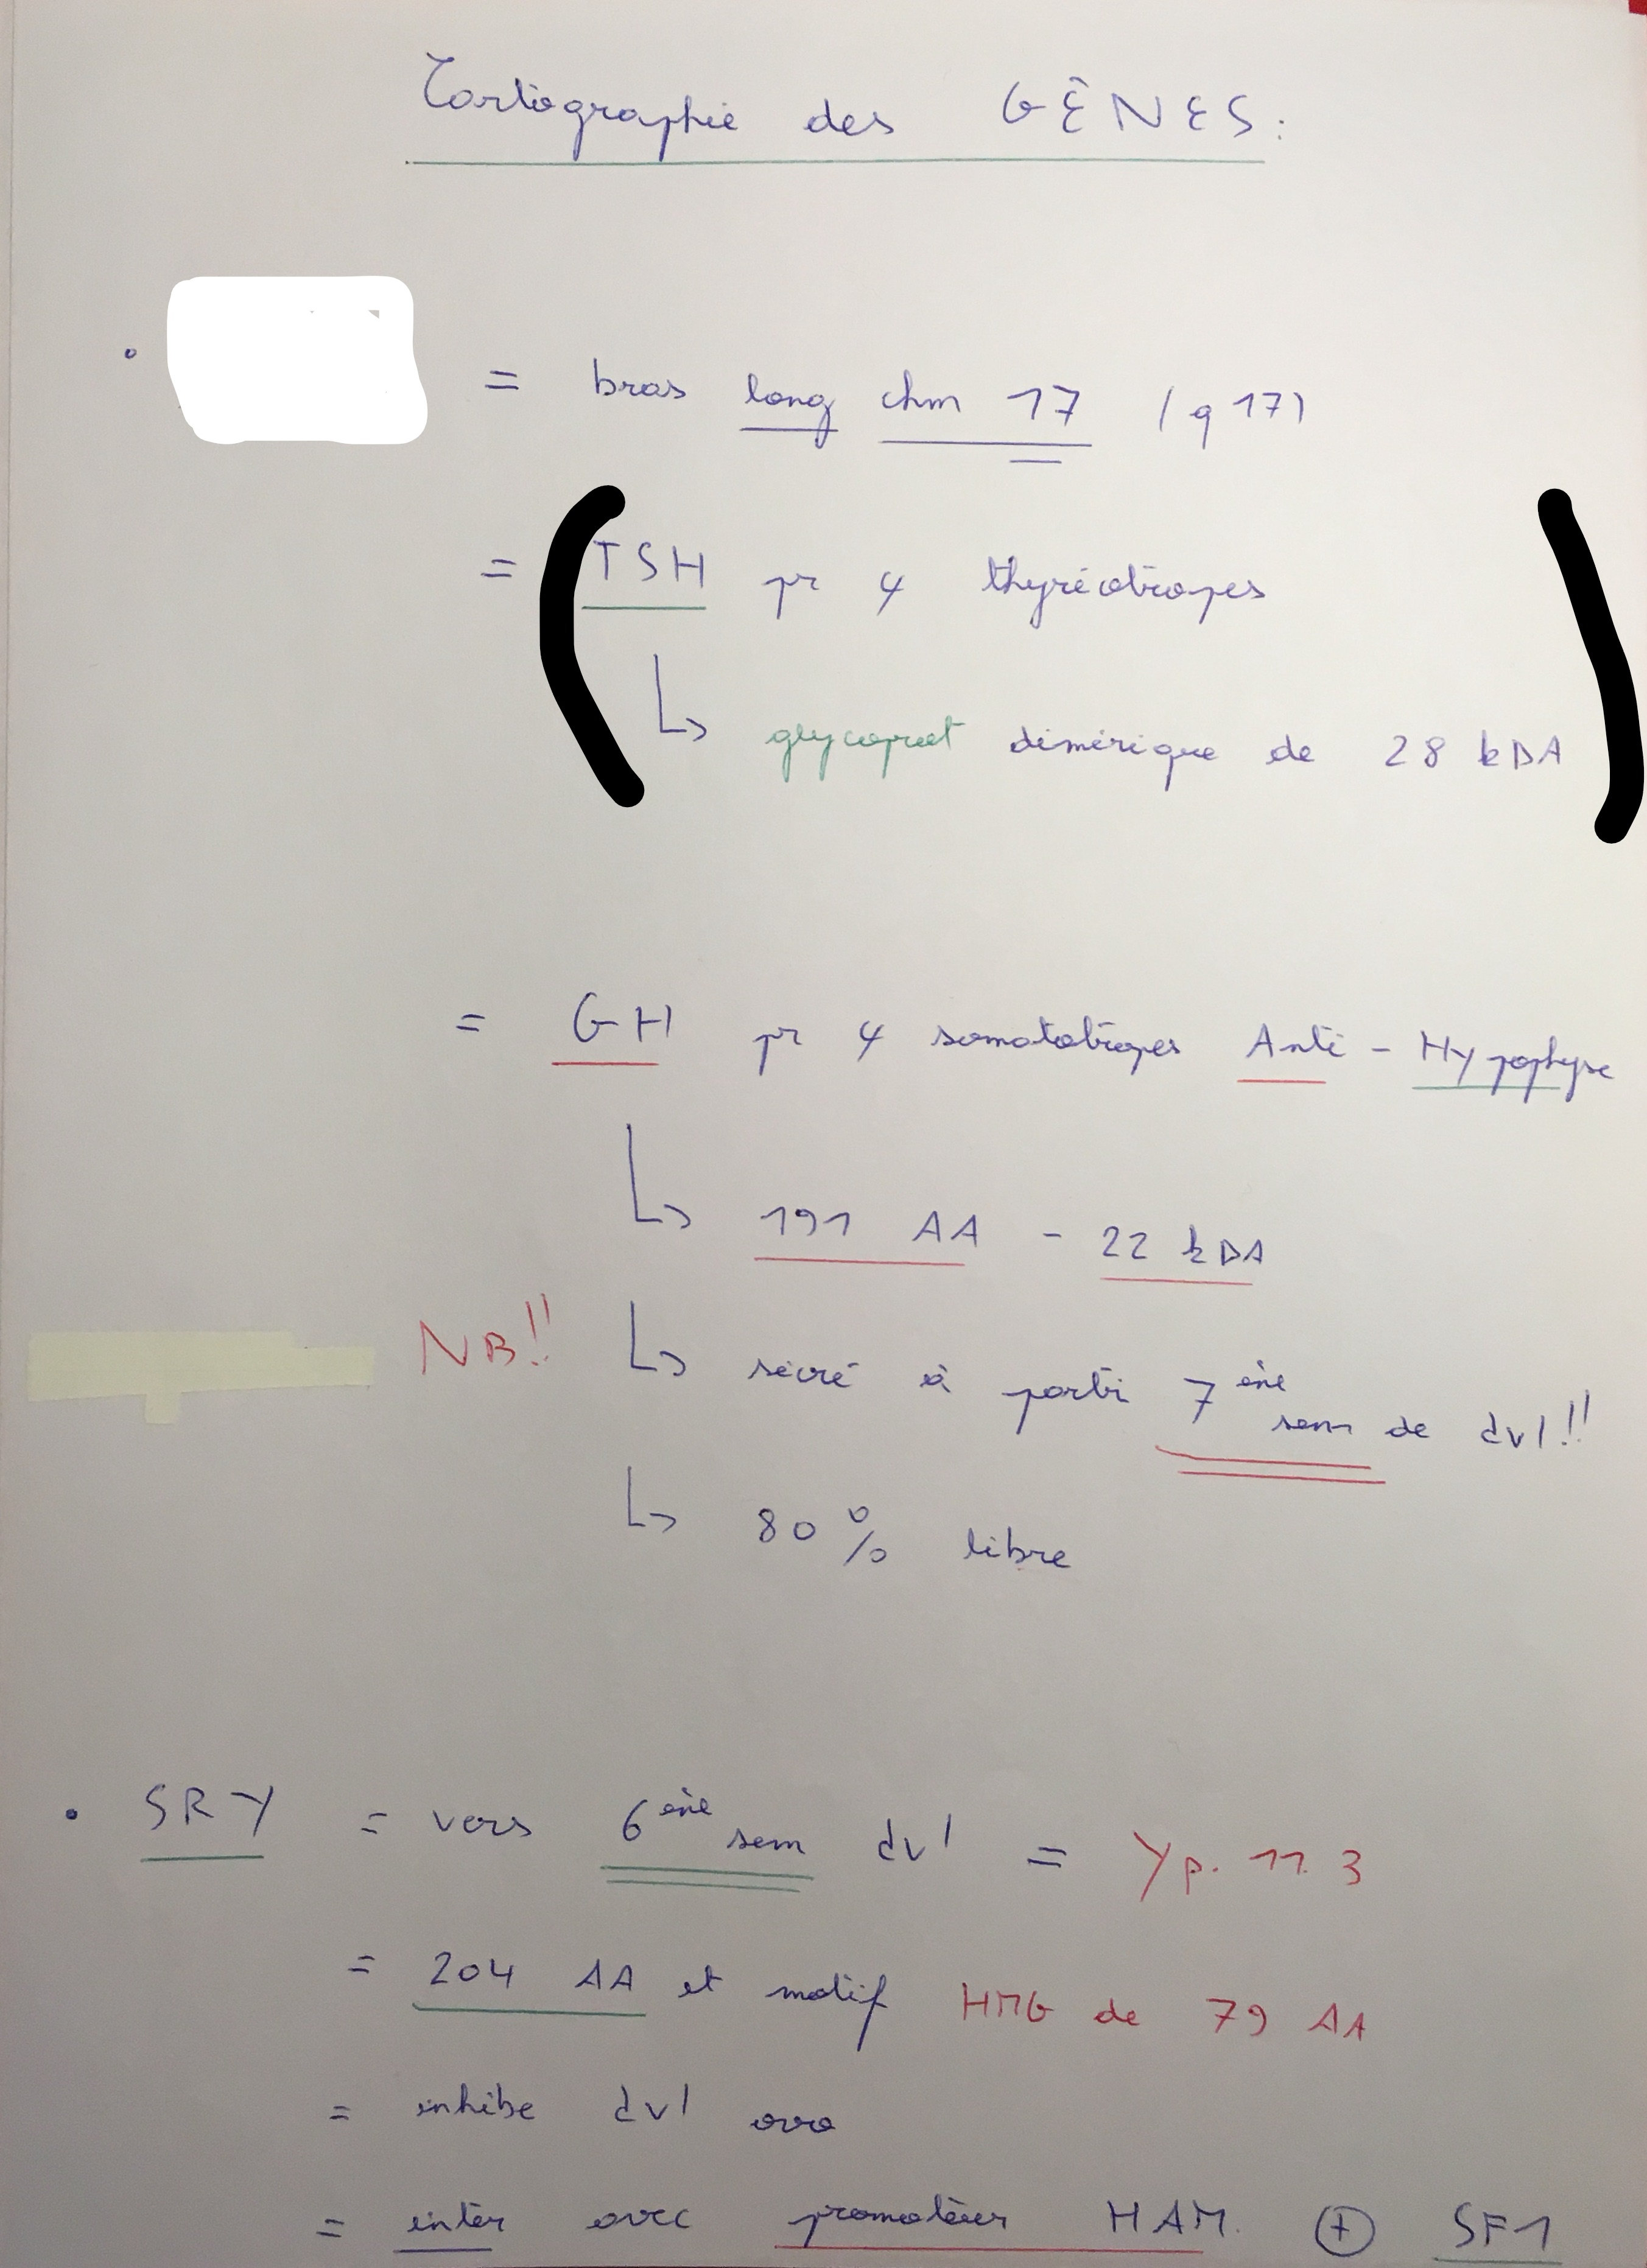 Cartographie des GÈNES :
= bras long chm 17 (q 17)
= TSH pr 4 thyréotropes
↳ glycoprot dimérique de 28 kDA
= GH pr 4 somatotropes Anté - Hypophyse
↳ 191 AA - 22 kDA
NB!! ↳ sécré à partir 7ème sem de dvl!!
↳ 80 % libre
• SRY = vers 6ème sem dvl = Yp. 11.3
= 204 AA et motif HMG de 79 AA
= inhibe dvl ova
= inter avec promoteur HAM. ⊕ SF1